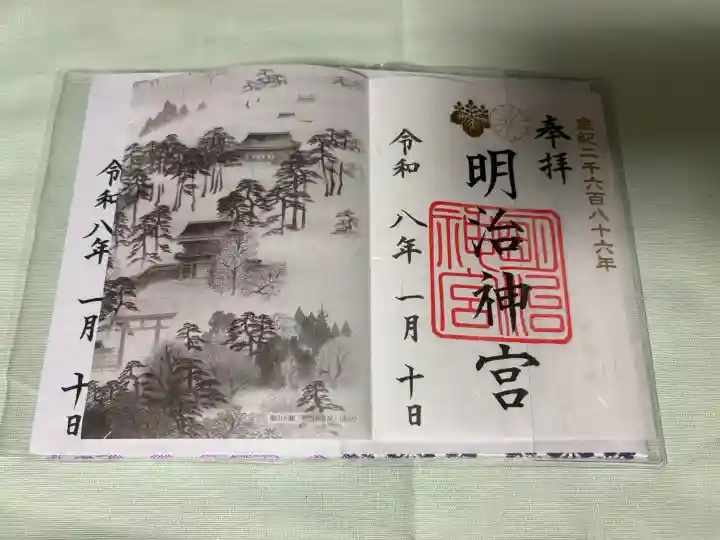 皇紀二千六百八十六年
奉拝
明治神宮
明治神宮
令和八年一月十日
令和八年一月十日